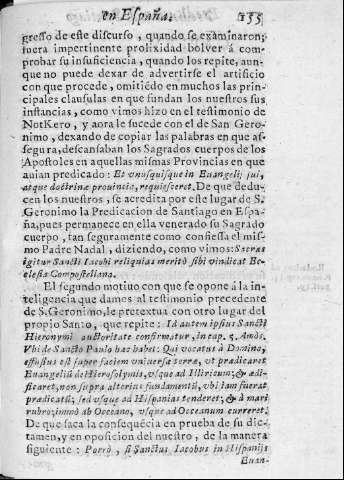 en España.
133
gresso de este discurso, quando se examinaron;
fuera impertinente prolixidad bolver á com-
probar su insuficiencia, quando los repite, aun-
que no puede dexar de advertirse el artificio
con que procede, omitiédo en muchos las prin-
cipales clausulas en que fundan los nuestros sus
instancias, como vimos hizo en el testimonio de
NotKero, y aora le sucede con el de San Gero-
nimo, dexando de copiar las palabras en que as-
segura, descansaban los Sagrados cuerpos de los
Apostoles en aquellas mismas Provincias en que
auian predicado: Et vnusquisque in Euangelij sui,
atque doctrinæ prouincia, requiesceret. De que dedu-
cen los nuestros, se acredita por este lugar de S.
Geronimo la Predicacion de Santiago en Espa-
ña, pues permanece en ella venerado su Sagrado
cuerpo, tan seguramente como confiessa el mis-
mo Padre Nadal, diziendo, como vimos: Sacras
igitur Sancti Iacobi reliquias meritò sibi vindicat Ec-
clesia Compostellana.
El segundo motiuo con que se opone á la in-
teligencia que damos al testimonio precedente
de S. Geronimo, le pretextua con otro lugar del
propio Santo, que repite: Id autem ipsius Sancti
Hieronymi auctoritate confirmatur, in cap. 5. Amos.
Vbi de Sancto Paulo hæc habet: Qui vocatus à Domino,
effussus est super faciem vniuersæ terræ, vt prædicaret
Euangeliũ de Hierosolymis, vsque ad Illiricum; & ædi-
ficaret, non supra alterius fundamentũ, vbi iam fuerat
prædicatũ; sed vsque ad Hispanias tenderet; & à mari
rubro; immò ab Oceano, vsque ad Oceanum curreret.
De que saca la consequécia en prueba de su dic-
tamen, y en oposicion del nuestro, de la manera
siguiente: Porrò, si Sanctus Iacobus in Hispanijs
Euan-